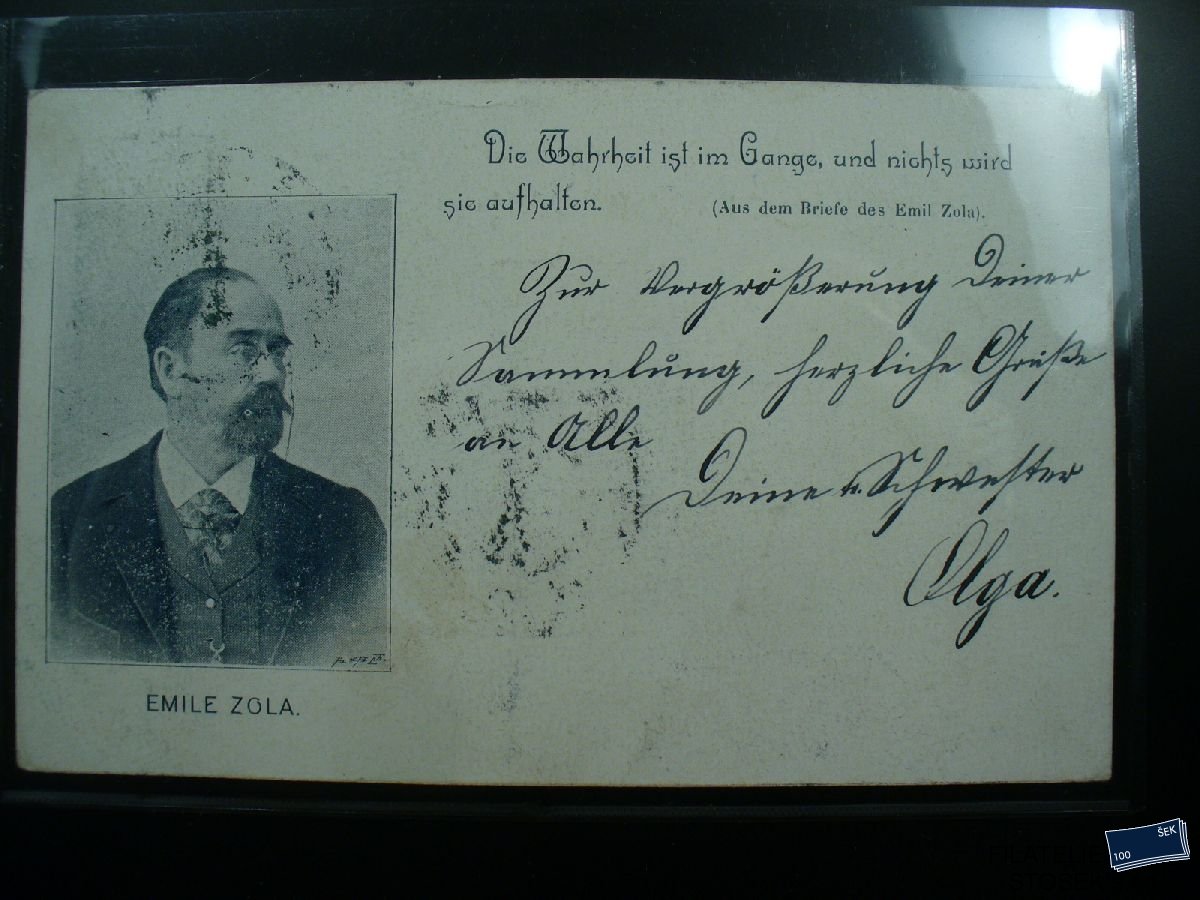 Die Wahrheit ist im Gange, und nichts wird
sie aufhalten.
(Aus dem Briefe des Emil Zola).
Zur Vergrößerung Deiner
Sammlung, herzliche Grüße
an Alle
Deine Schwester
Olga.
EMILE ZOLA.
100 ŠEK